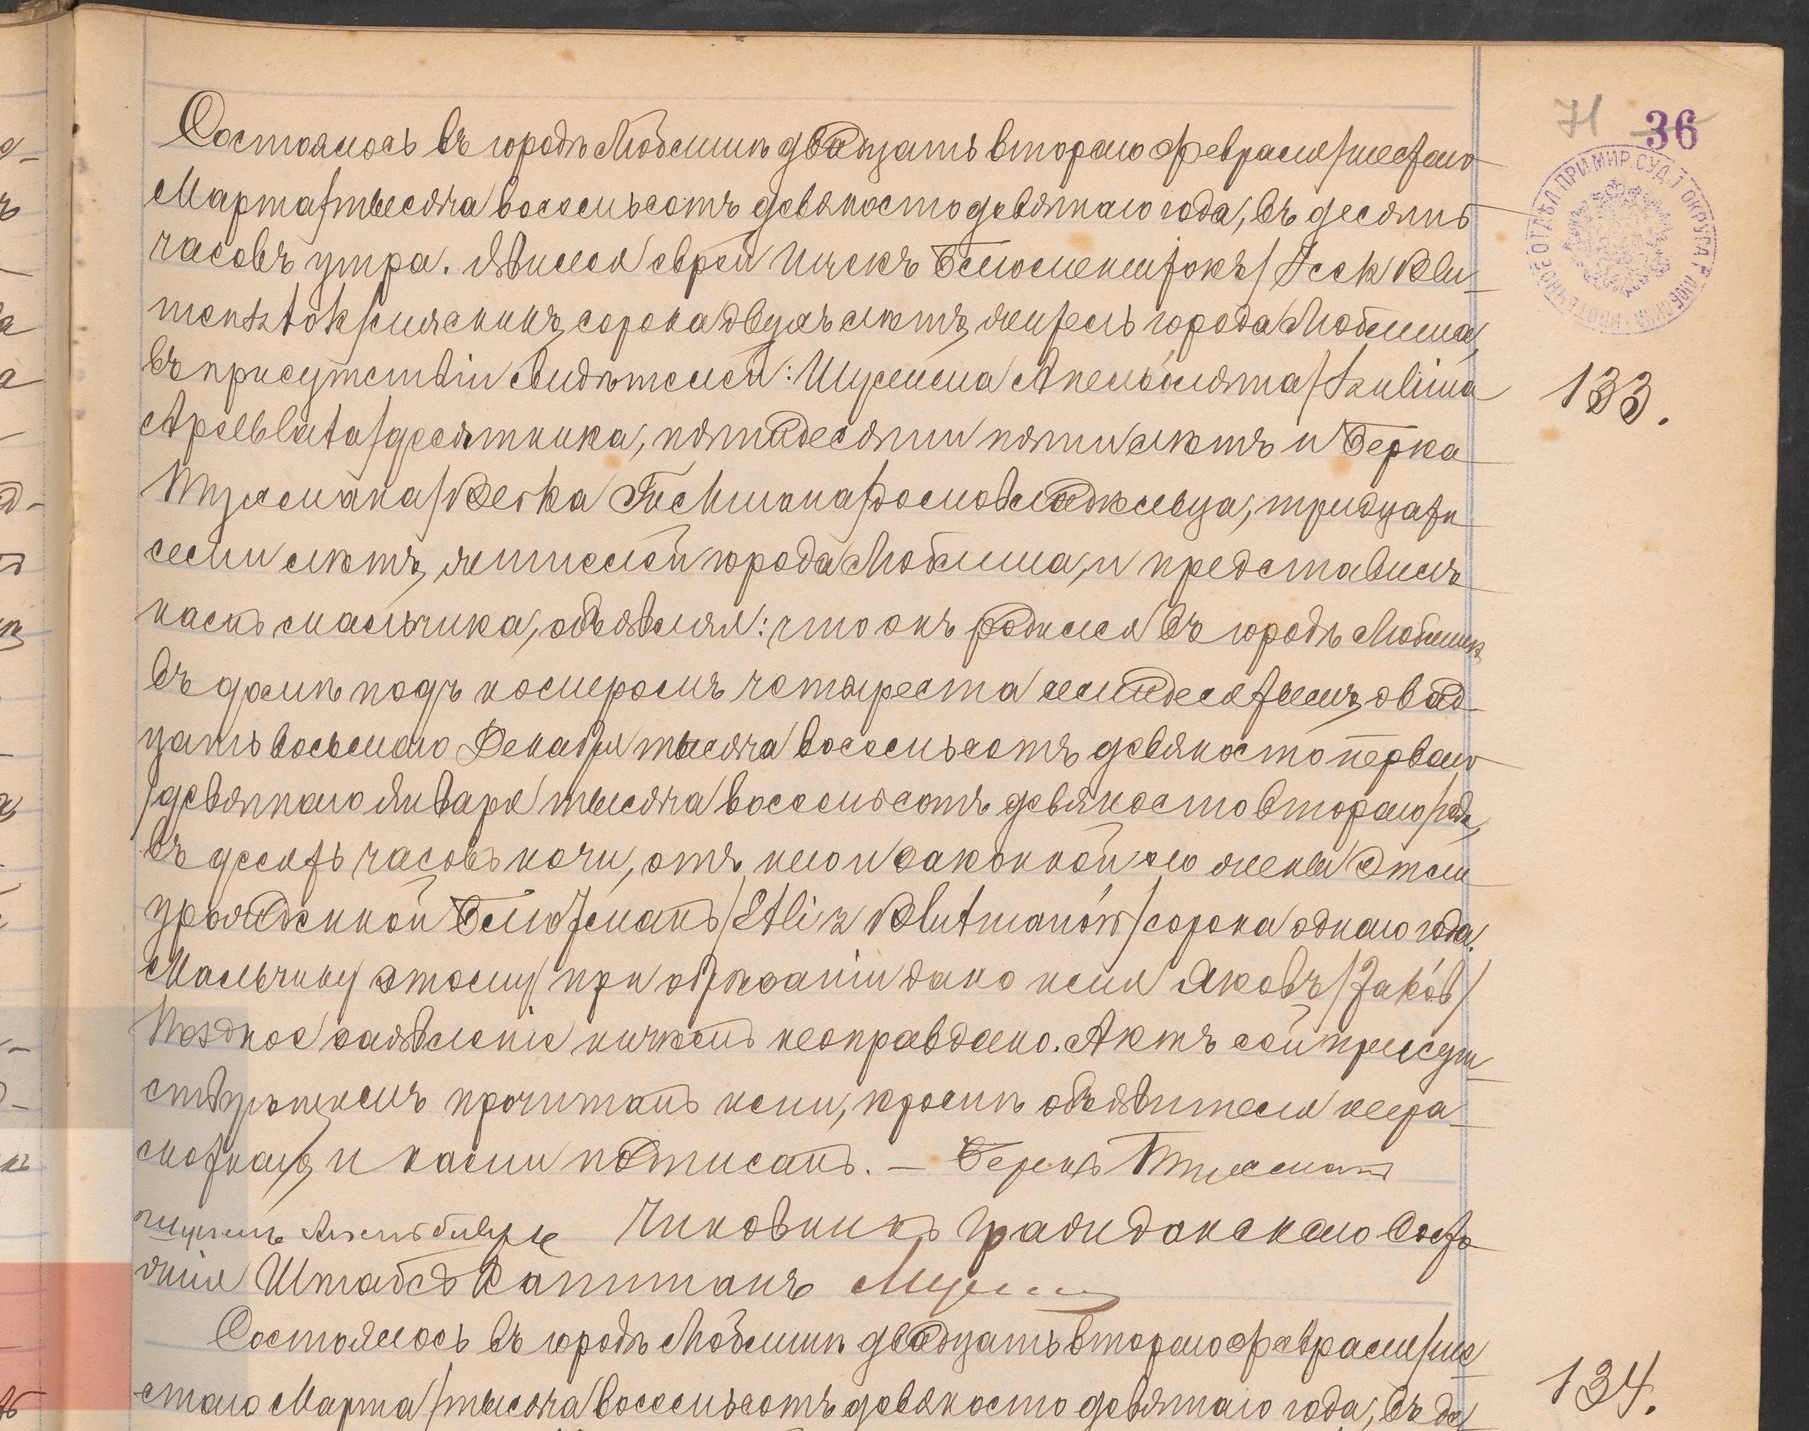 71 36
Состоялось въ городѣ Люблинѣ двадцать второго Февраля/шестаго
Марта/тысяча восемьсотъ девяносто девятаго года, въ десять
часовъ утра. Явился еврей Ицекъ Блюменштокъ/Icek Blu-
mensztok/мясникъ, сорока двухъ лѣтъ, житель города Люблина,
въ присутствіи свидѣтелей: Шулима Апельблята/Szulima
Apelblata/десятника, пятидесяти пяти лѣтъ и Берка
Тухмана/Berka Tuchmana/домовладѣльца, тридцати
семи лѣтъ, жителей города Люблина, и представилъ
намъ мальчика, объявляя: что онъ родился въ городѣ Люблинѣ
въ домѣ подъ номеромъ четыреста семидесятымъ, двад-
цать восьмаго Декабря тысяча восемьсотъ девяносто перваго
/девятаго Января тысяча восемьсотъ девяносто втораго/года,
въ десять часовъ ночи, отъ него и законной его жены Этли
урожденной Блютманъ/Etli z Blutmanów/сорока одного года.
Мальчику этому при обрѣзаніи дано имя Яковъ/Jakób/
Позднее заявленіе ничѣмъ неоправдано. Актъ сей присут-
ствующимъ прочитанъ нами, кромѣ объявителя негра-
мотнаго, и нами подписанъ. — Беркъ Тухманъ
Чиновникъ Гражданскаго Состо-
янія Штабсъ Капитанъ
Состоялось въ городѣ Люблинѣ двадцать втораго Февраля/ше
стаго Марта/тысяча восемьсотъ девяносто девятаго года, въ де
133.
134.